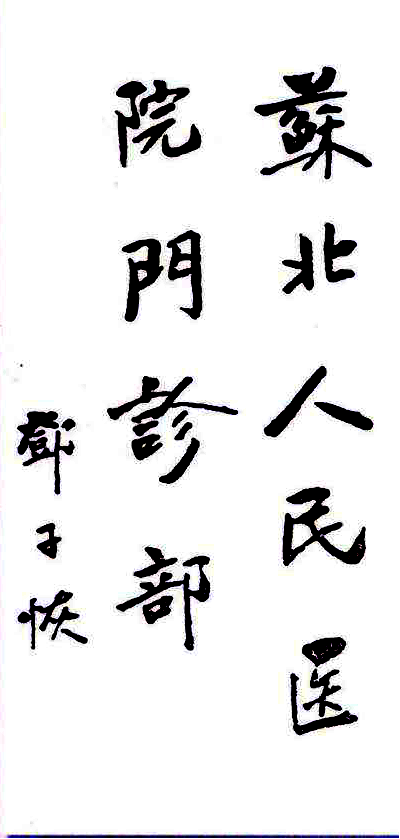 蘇北人民医
院門診部
鄧子恢